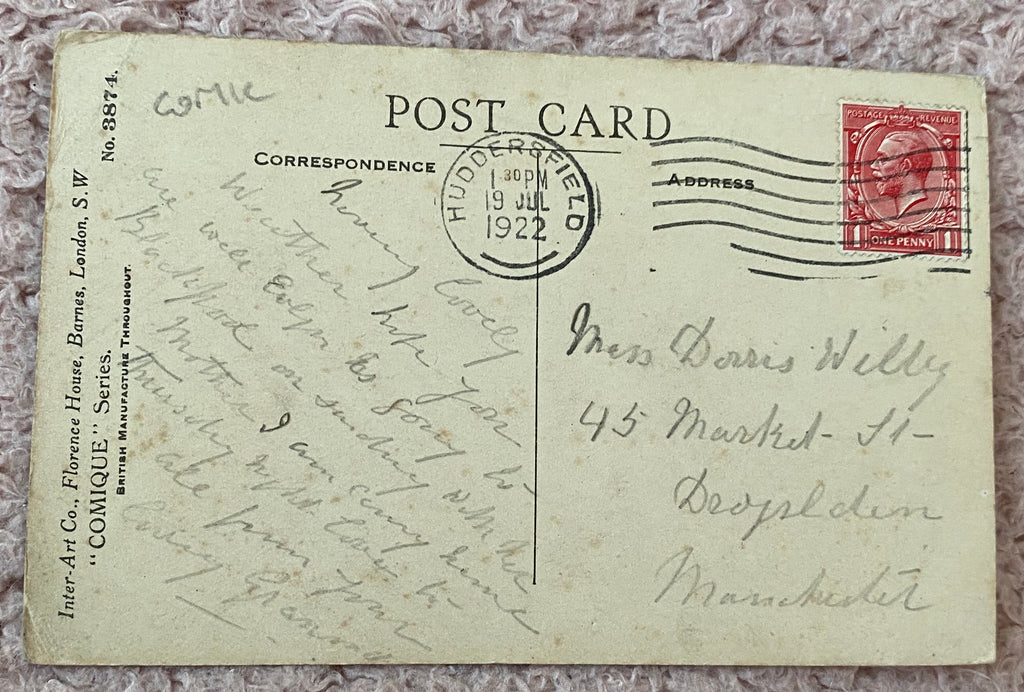 comic
POST CARD
CORRESPONDENCE
ADDRESS
HUDDERSFIELD
1 30PM
19 JUL
1922
POSTAGE REVENUE
1 ONE PENNY 1
Inter-Art Co., Florence House, Barnes, London, S.W
"COMIQUE" Series.
No. 3874.
BRITISH MANUFACTURE THROUGHOUT.
having lovely
Weather hope you
are well to
Blackpool on sunday with the
Mother I am home
Thursday night love to
all from your
loving
Miss Dorris Willby
45 Market St
Droylsden
Manchester